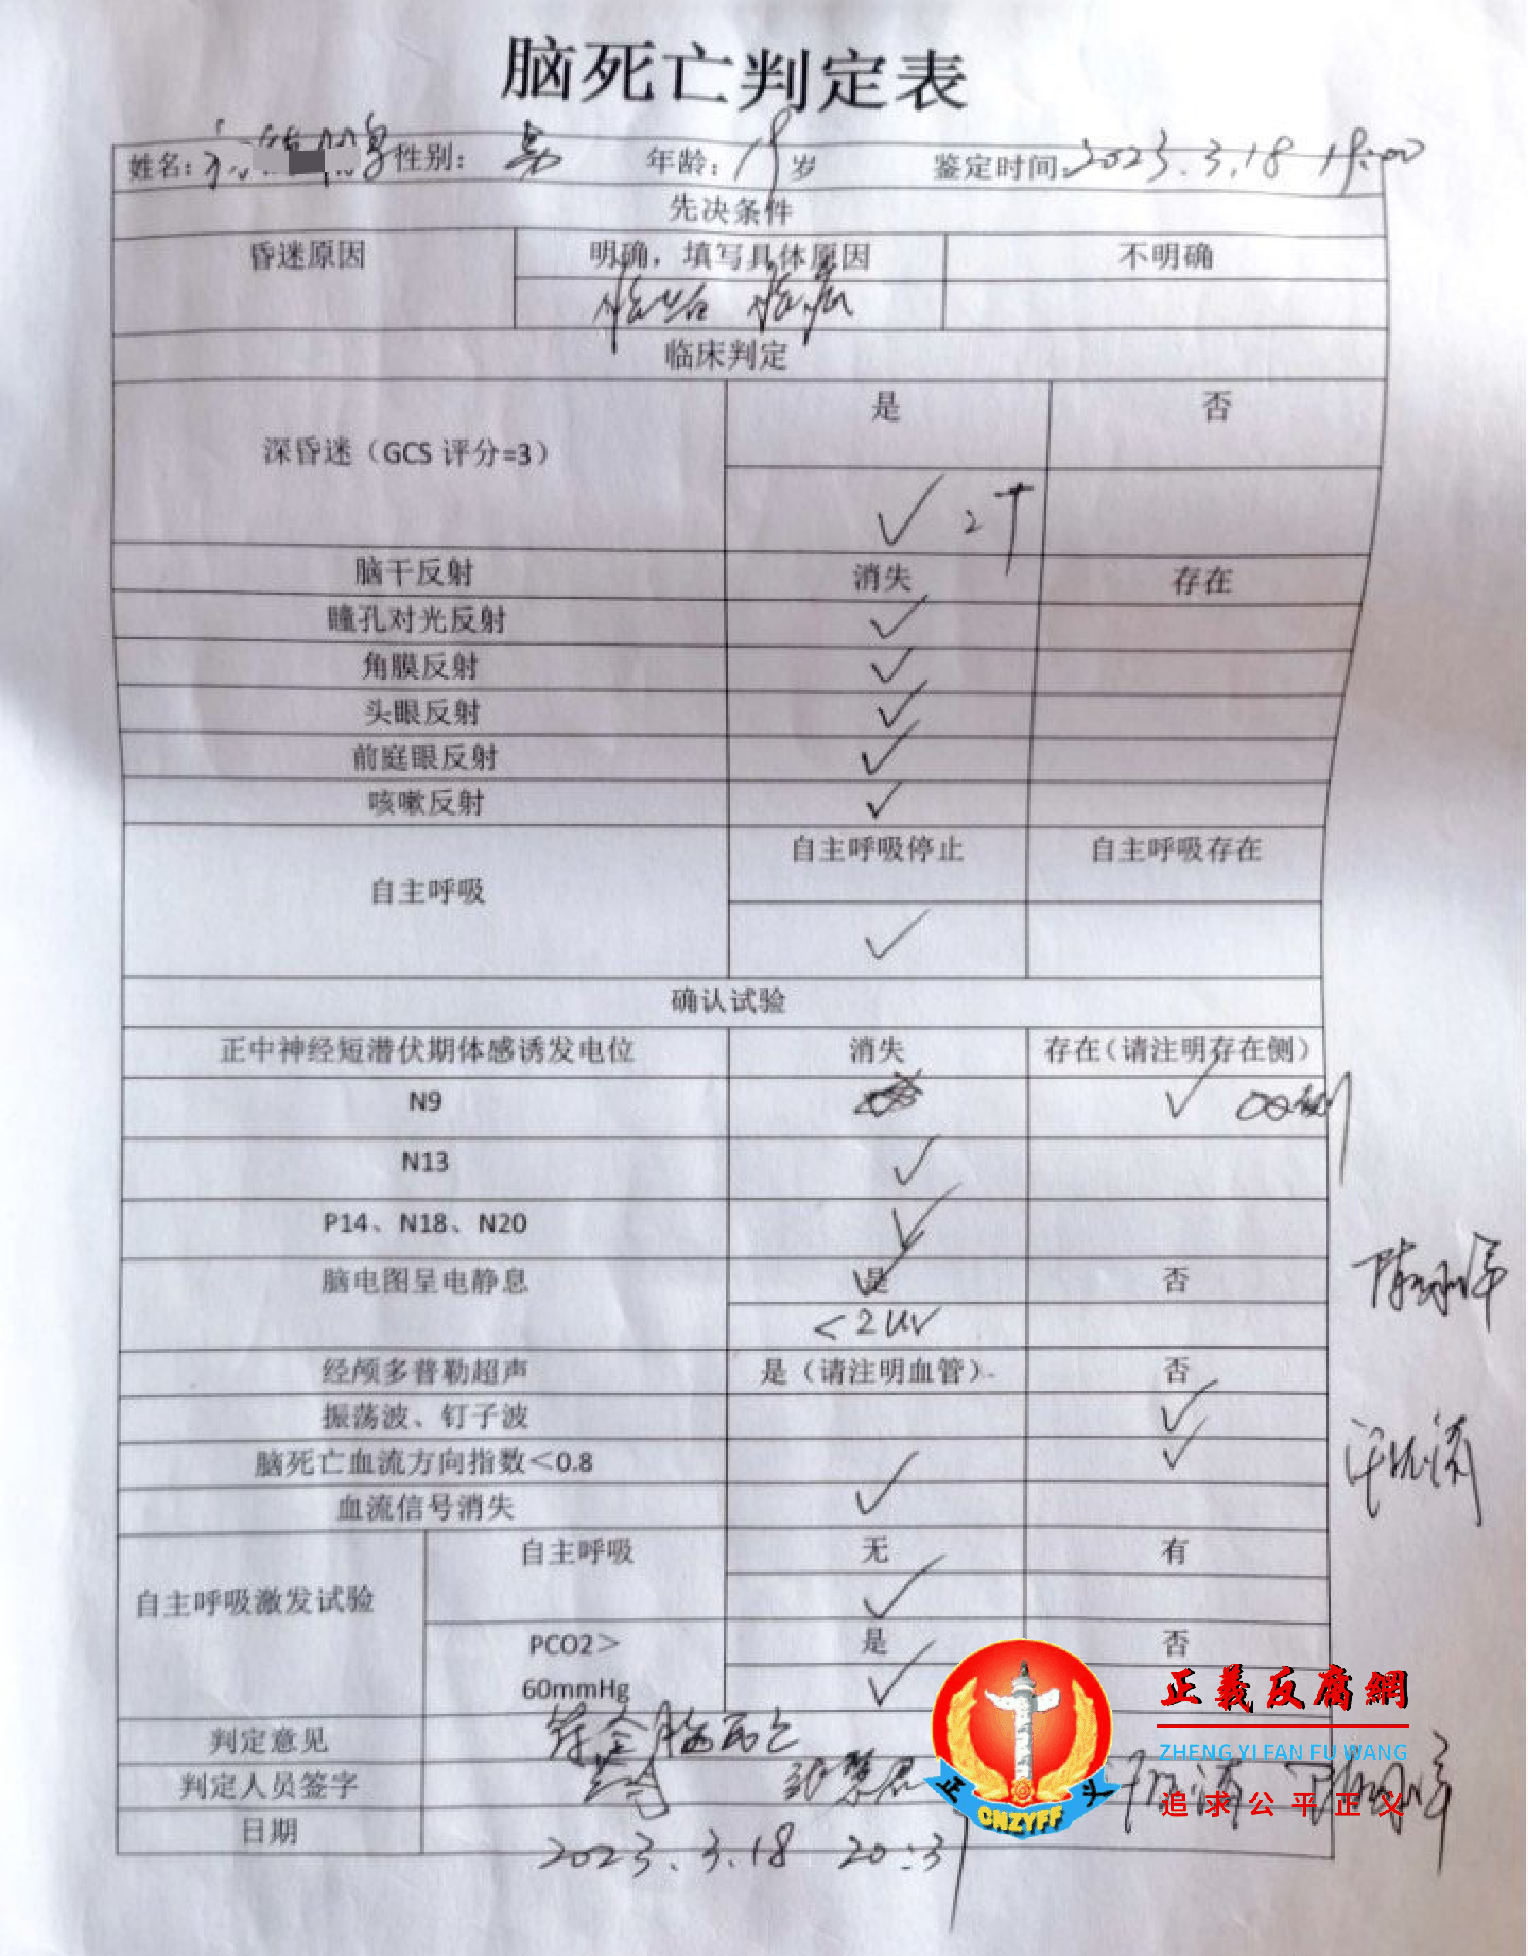 脑死亡判定表
姓名: 性别: 男 年龄: 19 岁 鉴定时间: 2023.3.18 19:00
先决条件
昏迷原因 明确，填写具体原因 不明确
临床判定
是 否
深昏迷（GCS 评分=3）
✓ 2T
脑干反射 消失 存在
瞳孔对光反射 ✓
角膜反射 ✓
头眼反射 ✓
前庭眼反射 ✓
咳嗽反射 ✓
自主呼吸停止 自主呼吸存在
自主呼吸
✓
确认试验
正中神经短潜伏期体感诱发电位 消失 存在（请注明存在侧）
N9 ✓
N13 ✓
P14、N18、N20 ✓
脑电图呈电静息 是 ✓ 否
<2uv
经颅多普勒超声 是（请注明血管） 否
振荡波、钉子波 ✓
脑死亡血流方向指数<0.8 ✓
血流信号消失 ✓
自主呼吸 无 有
自主呼吸激发试验 ✓
PCO2> 是 否
60mmHg ✓
判定意见 符合脑死亡
判定人员签字
日期 2023.3.18 20:31
正義反腐網
ZHENG YI FAN FU WANG
追求公平正义
正 义
CNZYFF